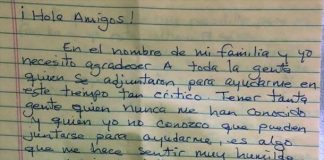 ¡Hola Amigos!
En el nombre de mi familia y yo
necesito agradecer A toda la gente
quien se adjuntaron para ayudarme en
este tiempo tan crítico. Tener tanta
gente quien nunca me han conosido
y quien yo no conozco que pueden
juntarse para ayudarme, es algo
que me hace sentir muy humilde